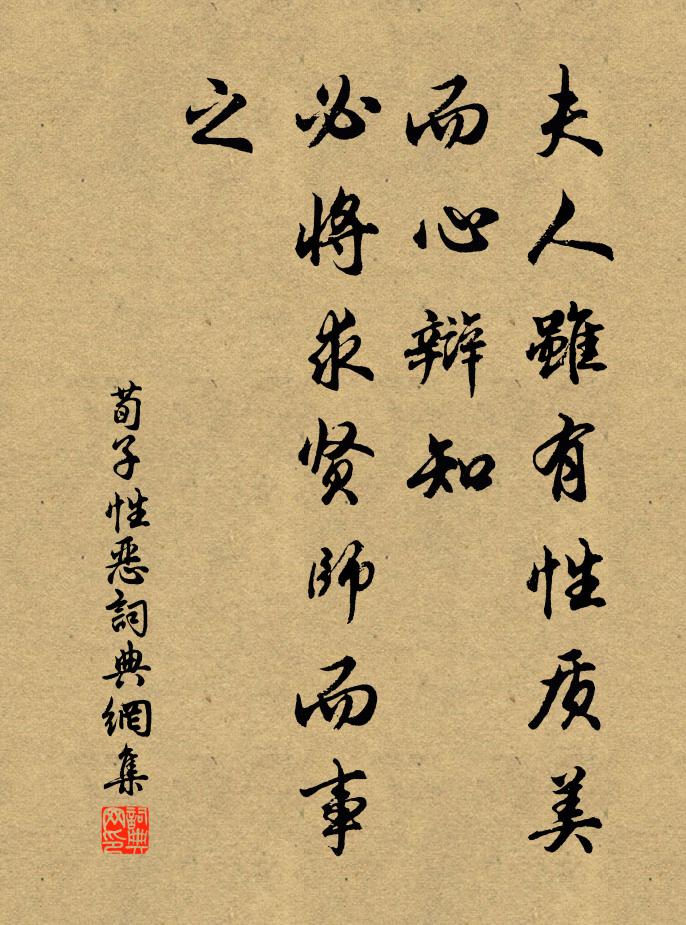 夫人雖有性质美
而心辯知
必将求贤師而事
之
荀子性惡詞典網集
詞典网印